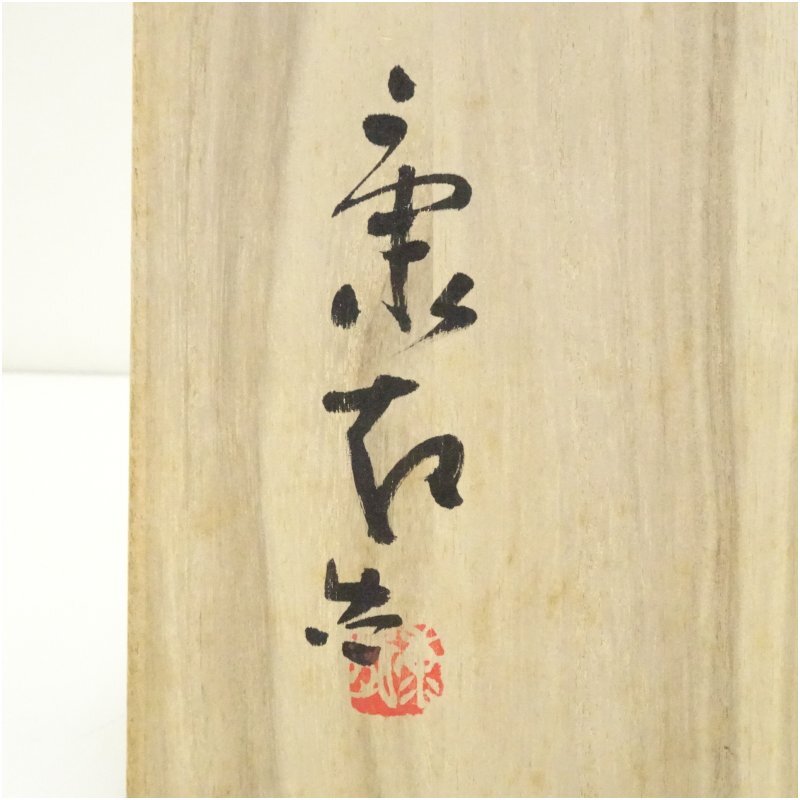 康石造